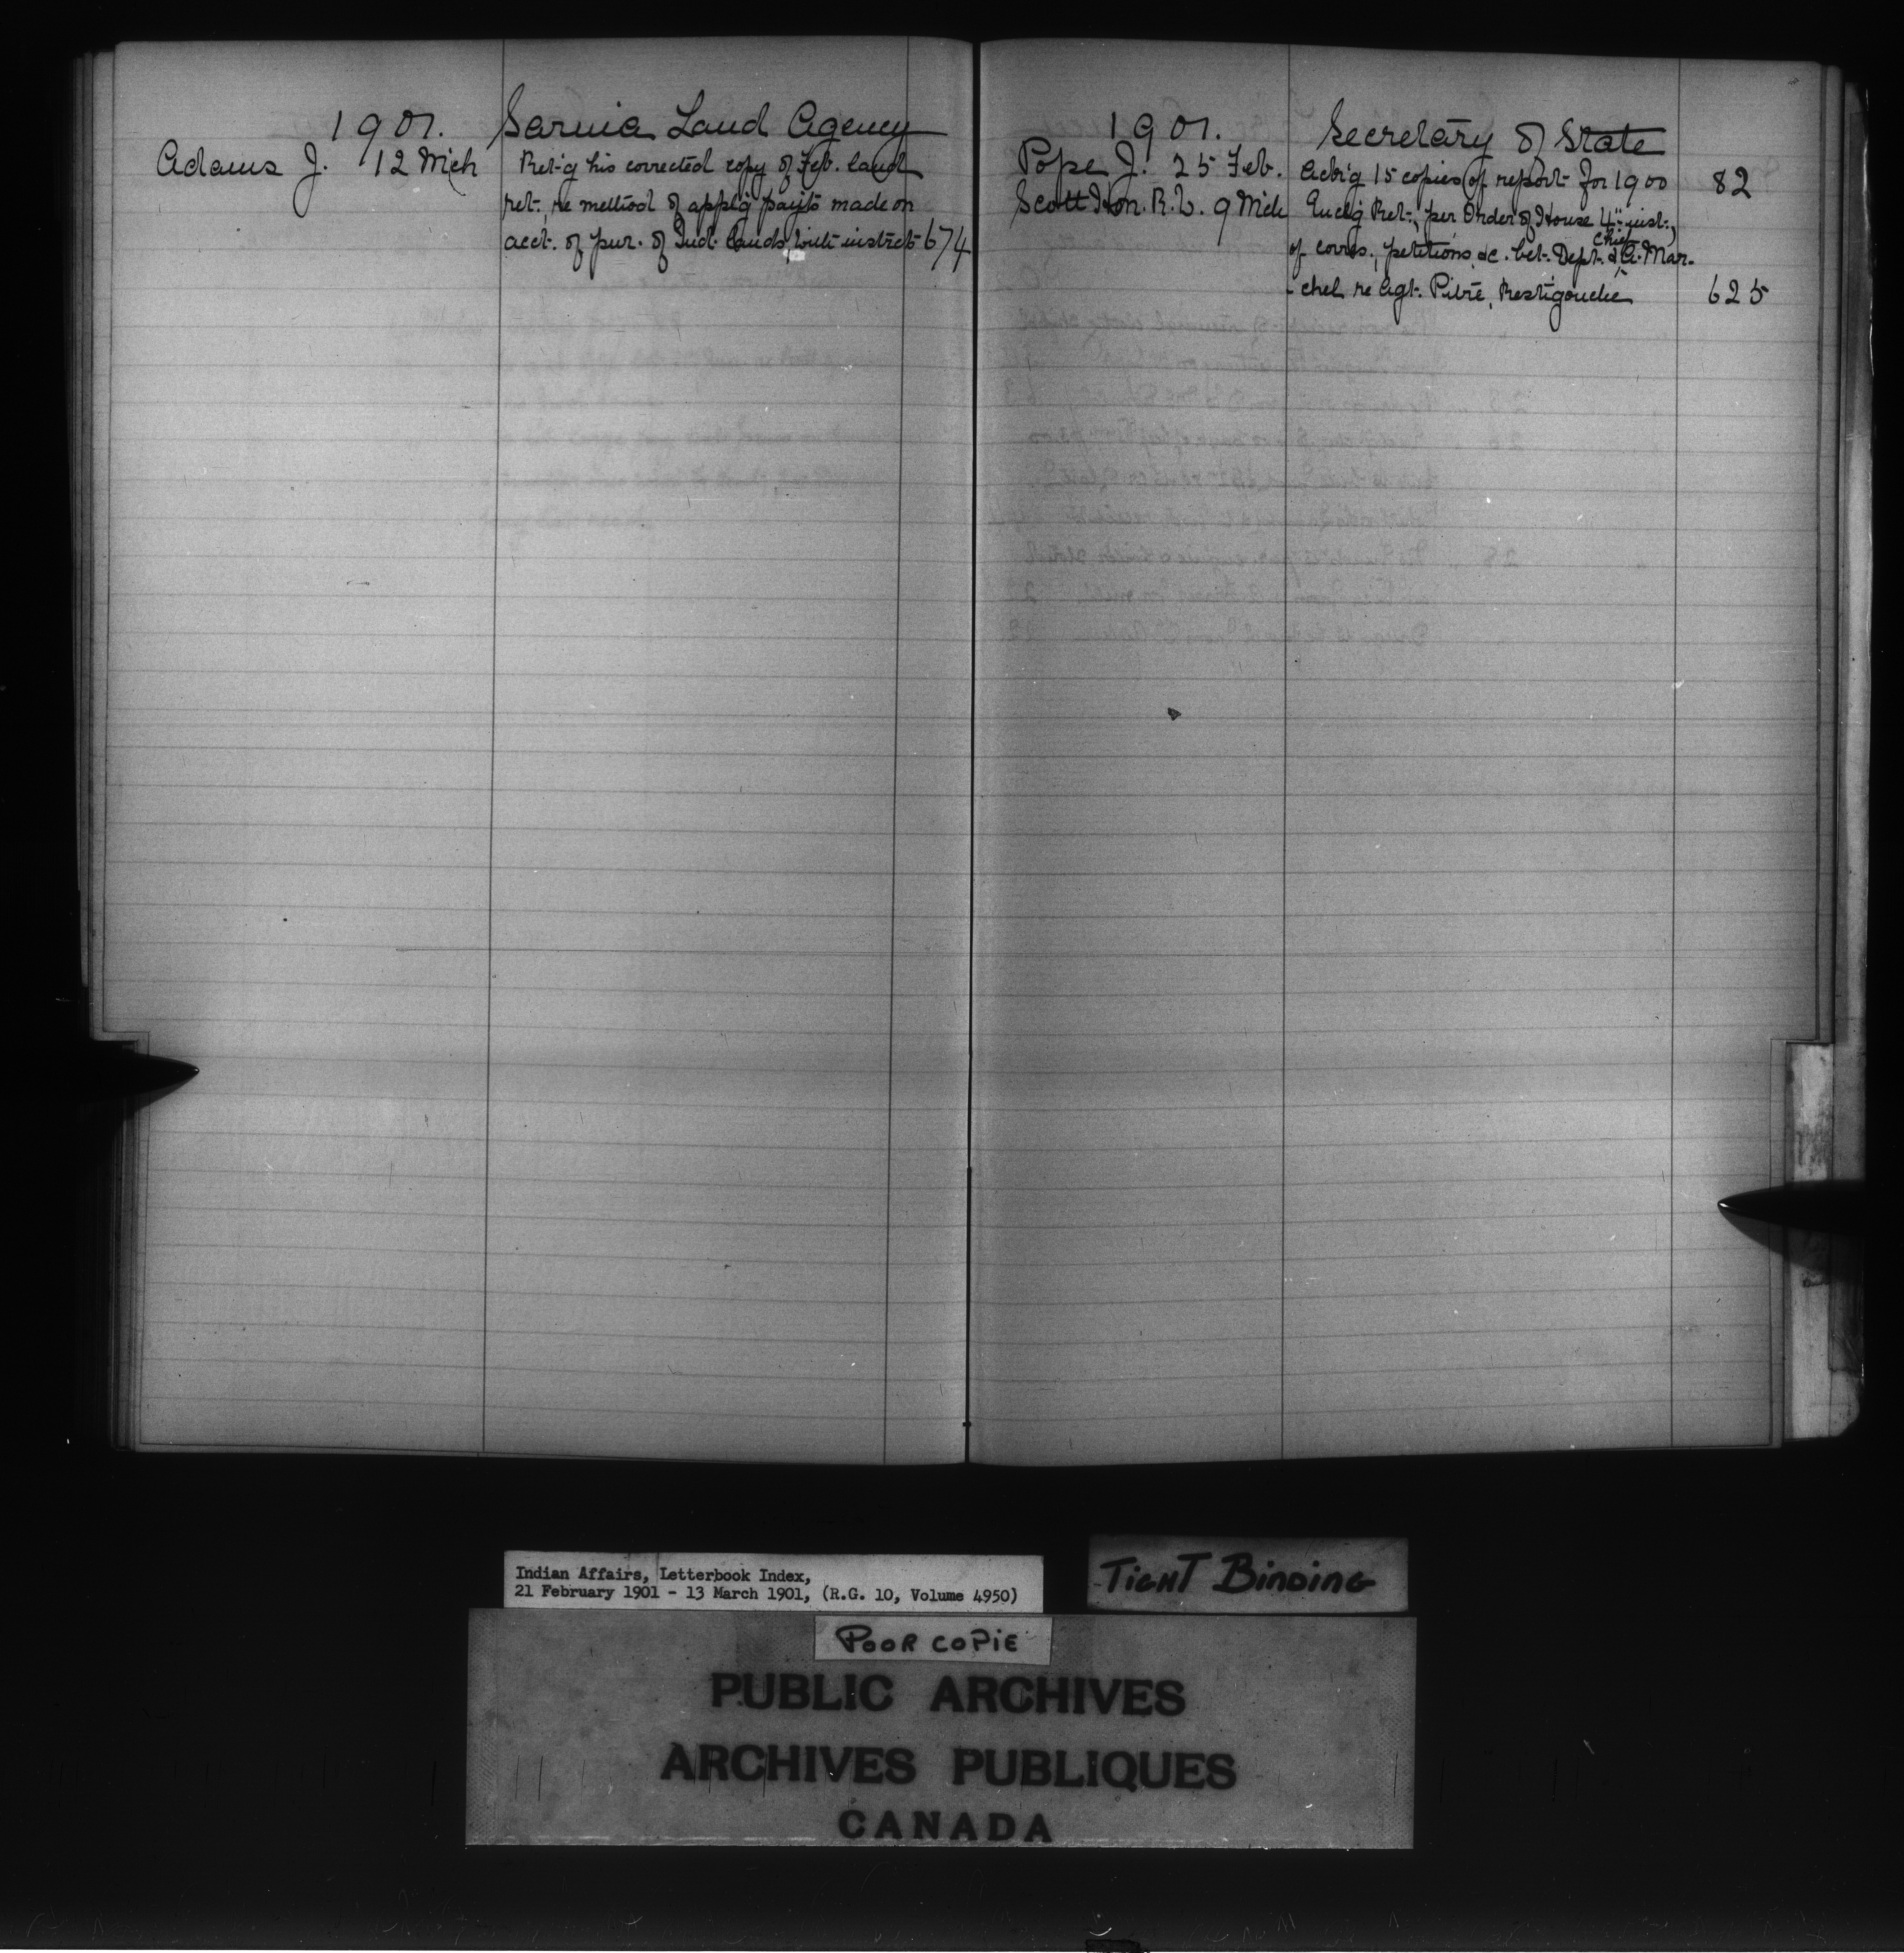 1901. Sarnia Land Agency
Adams J. 12 Mch Ret'g his corrected copy of Feb. land
ret., re method of appl'g payts made on
acct. of pur. of Ind. lands, with instrcts 674
1901. Secretary of State
Pope J. 25 Feb. Ack'g 15 copies of report for 1900 82
Scott Hon. R. W. 9 Mch Encl'g Ret., per Order of House 4" inst.,
of corres., petitions, &c. bet. Dept. & Chief A. Mar-
-chel re Agt. Pitre, Restigouche 625
Indian Affairs, Letterbook Index,
21 February 1901 - 13 March 1901, (R.G. 10, Volume 4950)
TIGHT BINDING
POOR COPIE
PUBLIC ARCHIVES
ARCHIVES PUBLIQUES
CANADA